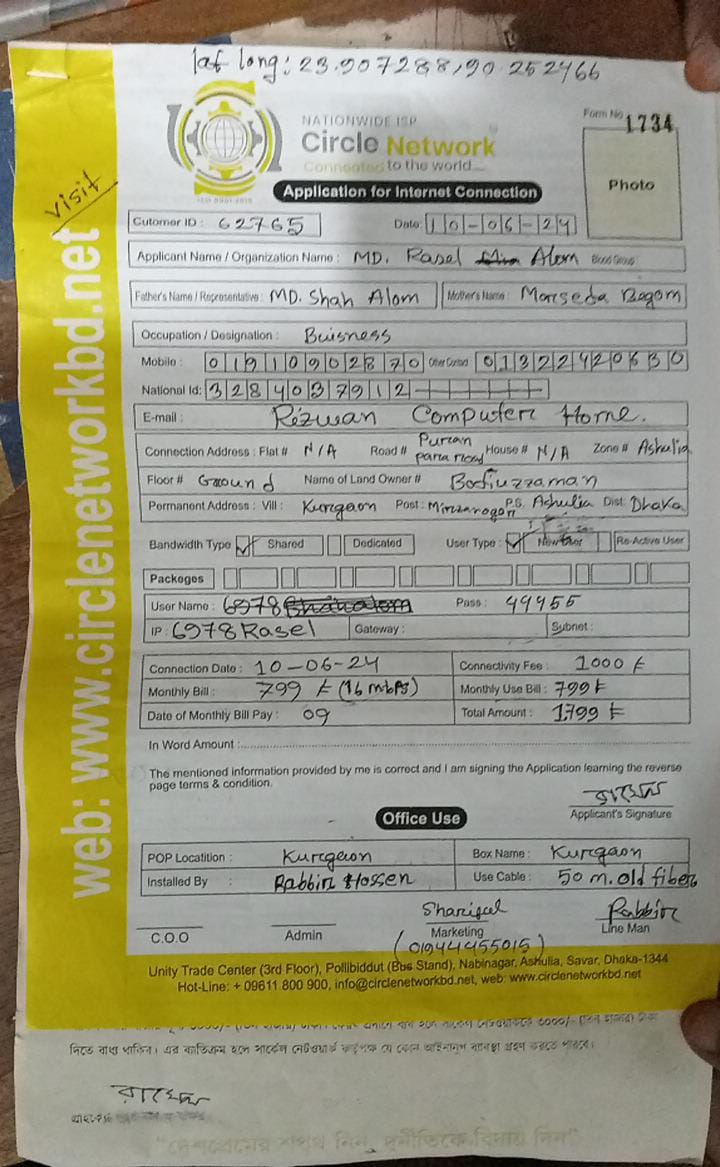 lat long: 23.907288,90.252466
Form No 1734
NATIONWIDE ISP
Circle Network
Connected to the world....
Photo
Application for Internet Connection
visit
web: www.circlenetworkbd.net
Cutomer ID : 62765 Date: 10-06-24
Applicant Name / Organization Name : MD. Rasel Alom Blood Group:
Father's Name / Representative : MD. Shah Alom Mother's Name : Morseda Begom
Occupation / Designation : Buisness
Mobile : 01910902870 Other Contact 01322420630
National Id: 3284037912
E-mail : Rizwan Computer Home.
Connection Address : Flat # N/A Road # Puran para road House # N/A Zone # Ashulia
Floor # Ground Name of Land Owner # Bodiuzzaman
Permanent Address : Vill : Kurgaon Post : Mirzanagor P.S. Ashulia Dist: Dhaka
Bandwidth Type Shared Dedicated User Type : New User Re-Active User
Packages
User Name : 6978 Pass : 49955
IP : 6978Rasel Gateway : Subnet :
Connection Date : 10-06-24 Connectivity Fee : 1000 ৳
Monthly Bill : 799 ৳ (16 mbps) Monthly Use Bill : 799 ৳
Date of Monthly Bill Pay : 09 Total Amount : 1799 ৳
In Word Amount :
The mentioned information provided by me is correct and I am signing the Application learning the reverse
page terms & condition.
রাসেল
Applicant's Signature
Office Use
POP Locatition : Kurgaon Box Name : Kurgaon
Installed By : Rabbir Hossen Use Cable : 50 m. old fiber
Shariful Rabbir
C.O.O Admin Marketing Line Man
(01944455015)
Unity Trade Center (3rd Floor), Pollibiddut (Bus Stand), Nabinagar, Ashulia, Savar, Dhaka-1344
Hot-Line: + 09611 800 900, info@circlenetworkbd.net, web: www.circlenetworkbd.net
দিতে বাধ্য থাকিব। এর ব্যতিক্রম হলে সার্কেল নেটওয়ার্ক কর্তৃপক্ষ যে কোন আইনানুগ ব্যবস্থা গ্রহণ করতে পারবে।
রাসেল
"দেশপ্রেমের শপথ নিন, দুর্নীতিকে বিদায় দিন"